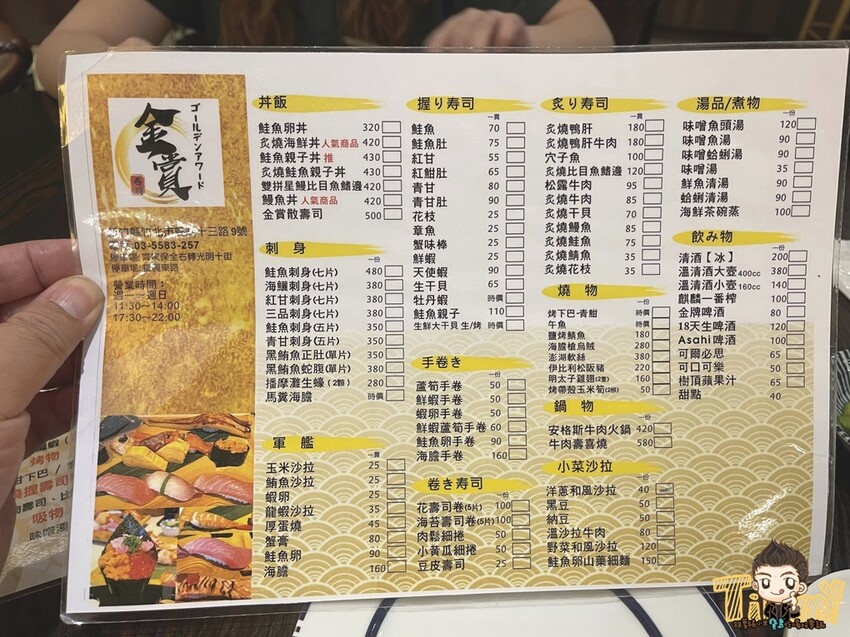 ゴールデンアワード
金賞
壽司
十三路 9號
03-5583-257
營業時間：
週一～週日
11:30～14:00
17:30～22:00
丼飯
鮭魚卵丼 320
炙燒海鮮丼 人氣商品 420
鮭魚親子丼 推 430
炙燒鮭魚親子丼 430
雙拼星鰻比目魚鰭邊 420
鰻魚丼 人氣商品 420
金賞散壽司 500
刺身
一份
鮭魚刺身(七片) 480
海鱺刺身(七片) 380
紅甘刺身(七片) 380
三品刺身(七片) 380
鮭魚刺身(五片) 350
青甘刺身(五片) 350
黑鮪魚正肚(單片) 350
黑鮪魚蛇腹(單片) 380
播摩灘生蠔(2顆) 280
馬糞海膽 時價
軍艦
一貫
玉米沙拉 25
鮪魚沙拉 25
蝦卵 25
龍蝦沙拉 35
厚蛋燒 45
蟹膏 80
鮭魚卵 90
海膽 160
握り寿司
一貫
鮭魚 70
鮭魚肚 75
紅甘 55
紅魽肚 65
青甘 80
青甘肚 90
花枝 25
章魚 25
蟹味棒 25
鮮蝦 25
天使蝦 90
生干貝 65
牡丹蝦 時價
鮭魚親子 110
生鮮大干貝 生/烤 時價
手卷き
一份
蘆筍手卷 50
鮮蝦手卷 50
蝦卵手卷 50
鮮蝦蘆筍手卷 60
鮭魚卵手卷 90
海膽手卷 160
卷き寿司
一份
花壽司卷(5片) 100
海苔壽司卷(5片) 100
肉鬆細捲 50
小黃瓜細捲 50
豆皮壽司 25
炙り寿司
一貫
炙燒鴨肝 180
炙燒鴨肝牛肉 180
穴子魚 100
炙燒比目魚鰭邊 120
松露牛肉 95
炙燒牛肉 85
炙燒干貝 70
炙燒鰻魚 90
炙燒鮭魚 75
炙燒鯖魚 40
炙燒花枝 35
燒物
一份
烤下巴-青魽 時價
午魚 時價
鹽烤鯖魚 180
海膽槍烏賊 380
澎湖軟絲 380
伊比利松阪豬 220
明太子雞翅(2隻) 160
烤帶殼玉米筍(2根) 50
鍋物
安格斯牛肉火鍋 420
牛肉壽喜燒 580
小菜沙拉
一份
洋蔥和風沙拉 40
黑豆 50
納豆 50
溫沙拉牛肉 80
野菜和風沙拉 120
鮭魚卵山藥細麵 150
湯品/煮物
一份
味噌魚頭湯 120
味噌魚湯 90
味噌蛤蜊湯 90
味噌湯 35
鮮魚清湯 90
蛤蜊清湯 90
海鮮茶碗蒸 100
飲み物
一份
清酒【冰】 200
溫清酒大壺400cc 380
溫清酒小壺160cc 140
麒麟一番榨 100
金牌啤酒 80
18天生啤酒 120
Asahi啤酒 100
可爾必思 65
可口可樂 50
樹頂蘋果汁 65
甜點 40